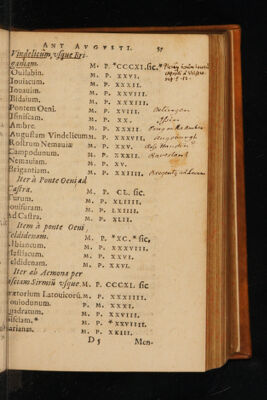 ANT AVGVSTI. 57
Vindelicum, vsque Bri-
gantiam. M. P. *CCCXI. sic.*
Ouilabin. M. P. XXVI.
Iouiacum. M. P. XXXII.
Iouauim. M. P. XXVIII.
Bidaium. M. P. XXXIII
Pontem Oeni. M. P. XVIII.
Isiniscam. M. P. XX.
Ambre. M. P. XXXII
Augustam Vindelicum. M. P. XXVII.
Rostrum Nemauiæ M. P. XXV.
Campodunum. M. P. XXXII.
Nemauiam. M. P. XV.
Brigantiam. M. P. XXIIII.
Iter à Ponte Oeni ad
Castra. M. P. CL. sic.
Turum. M. P. XLIIII.
Iouisuram. M. P. LXIIII.
Ad Castra. M. P. XLII.
Item à ponte Oeni,
Veldidenam. M. P. *XC.* sic,
Albianum. M. P. XXXVIII.
Masciacum. M. P. XXVI.
Veldidenam. M. P. XXVI.
Iter ab Aemona per
Sisciam Sirmiū vsque. M. P. CCCXI. sic
Prætorium Latouicorū. M. P. XXXIIII.
Nouiodunum. P. M. XXXI.
Quadratum. M. P. XXVIII.
Sisciam.* M. P. *XXVIIII.
Varianas. M. P. XXIII.
D 5 Men-